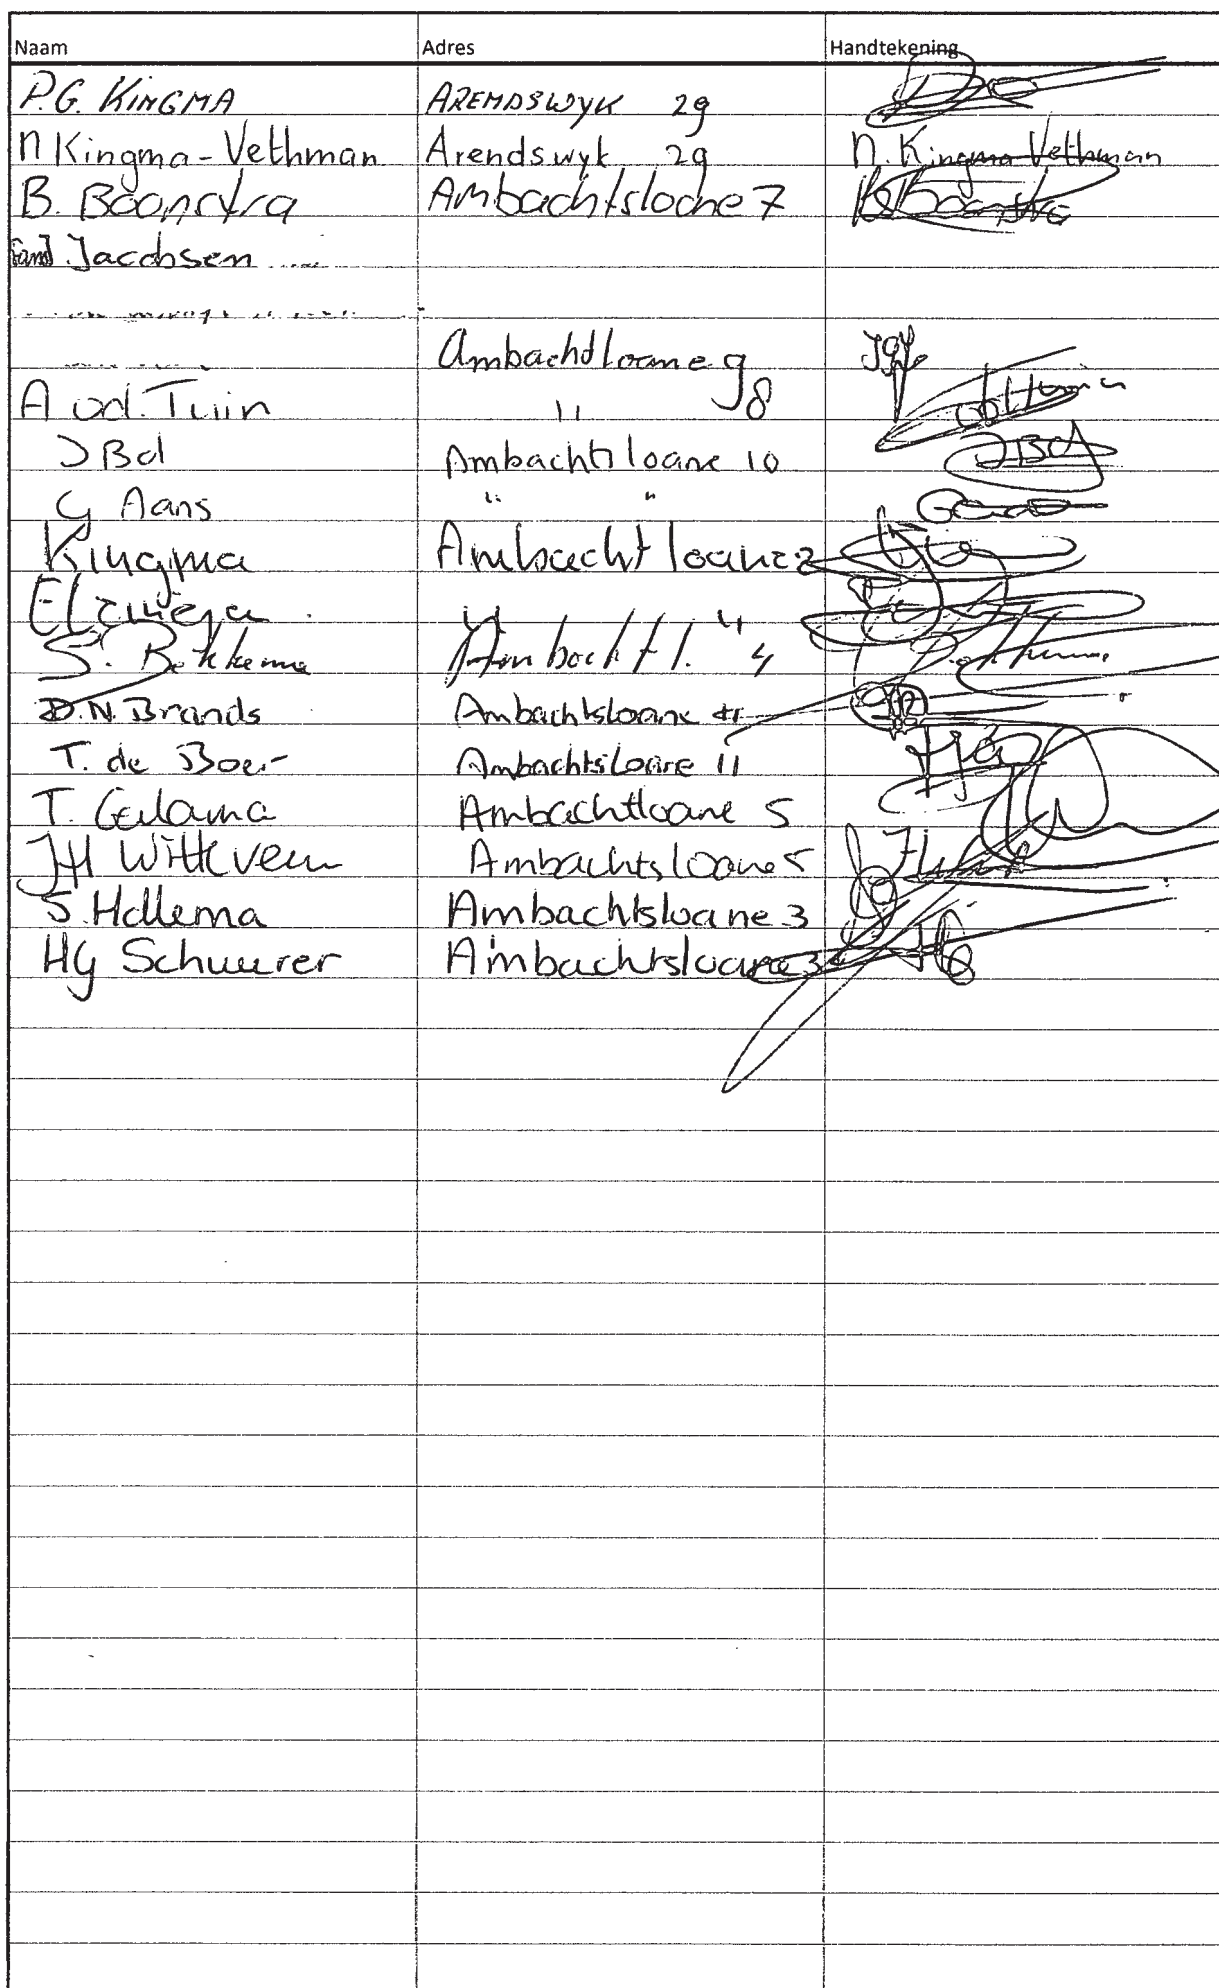 Naam Adres Handtekening
P.G. KINGMA ARENDSWYK 29
N Kingma-Vethman Arendswyk 29 N. Kingma Vethman
B. Boonstra Ambachtsloane 7 B Boonstra
Fam J. Jacobsen
Ambachtloane 9
A vd. Tuin " 8
J Bol Ambachtsloane 10 J Bol
G Aans " "
Kingma Ambachtloane 2
Elzinga " "
S. Bokkema Ambachtl. 4
D.N. Brands Ambachtsloane
T. de Boer Ambachtsloane 11
T. Galama Ambachtloane 5
JH Witteveen Ambachtsloane 5
S. Hallema Ambachtsloane 3
HG Schuurer Ambachtsloane 3